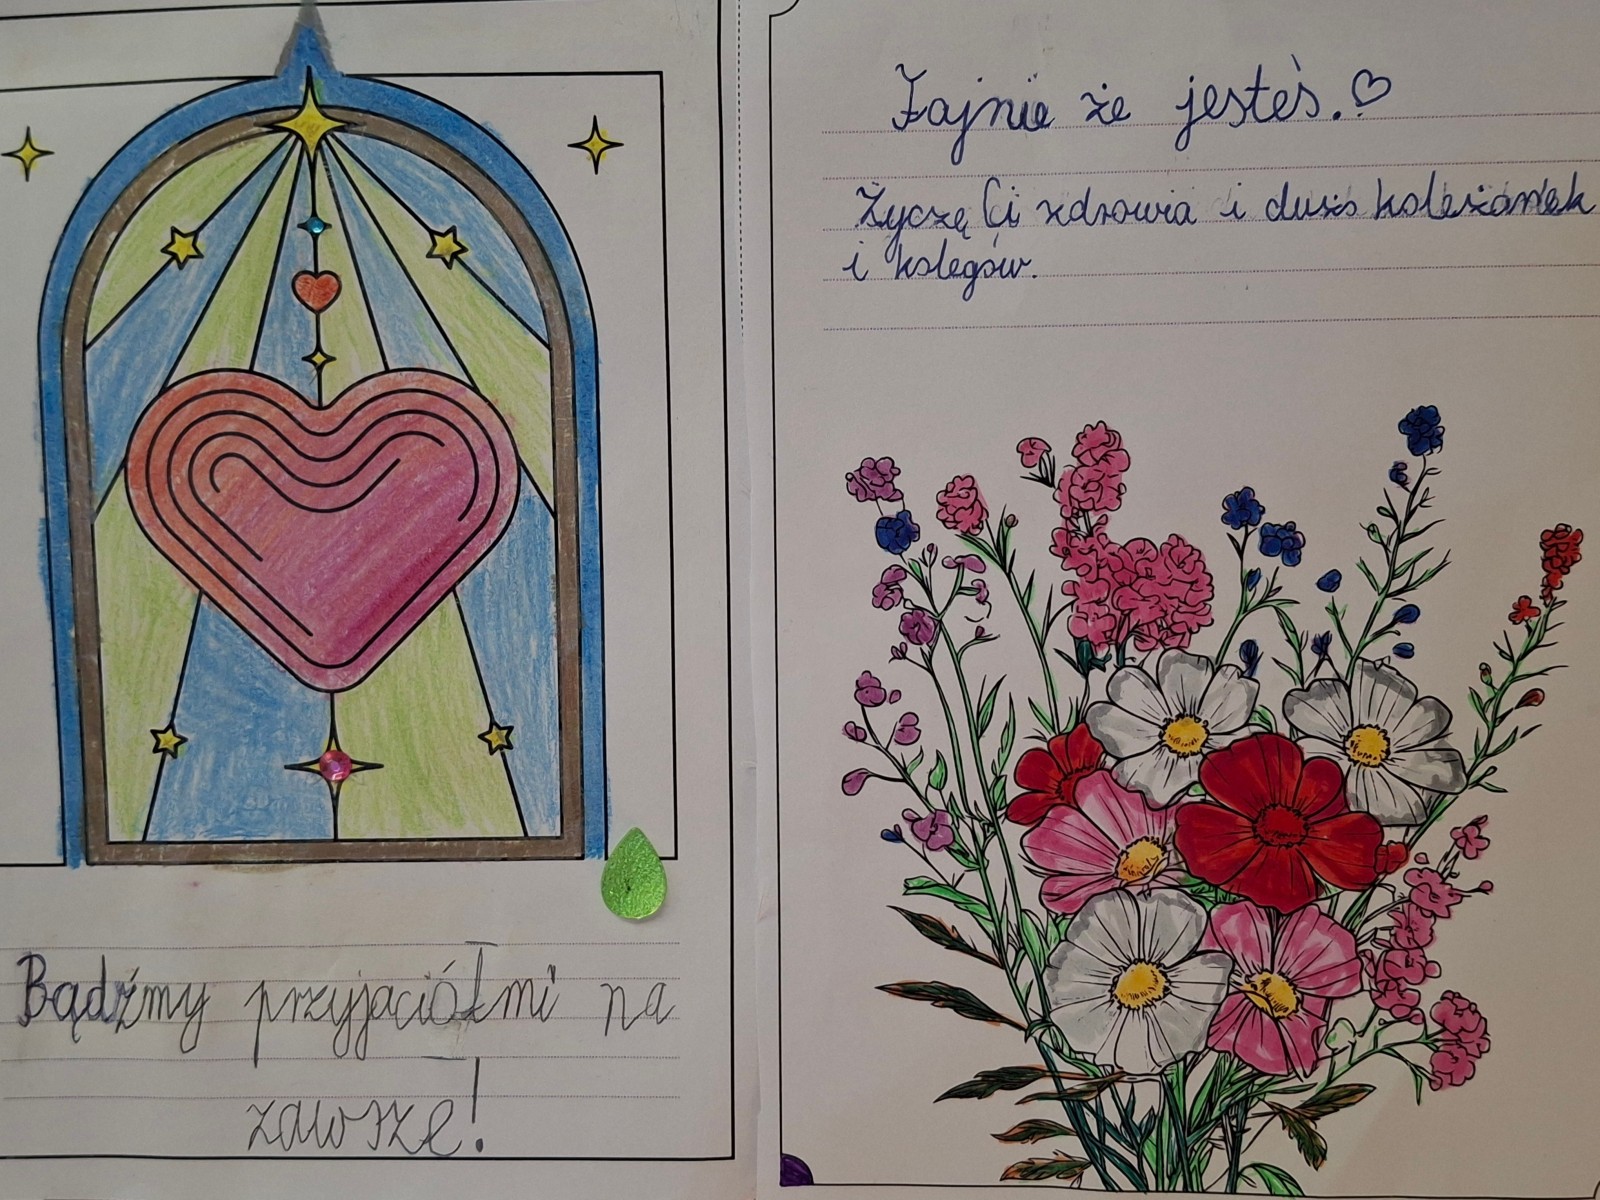 Bądźmy przyjaciółmi na
zawsze!
Fajnie że jesteś.
Życzę Ci zdrowia i dużo koleżanek
i kolegów.